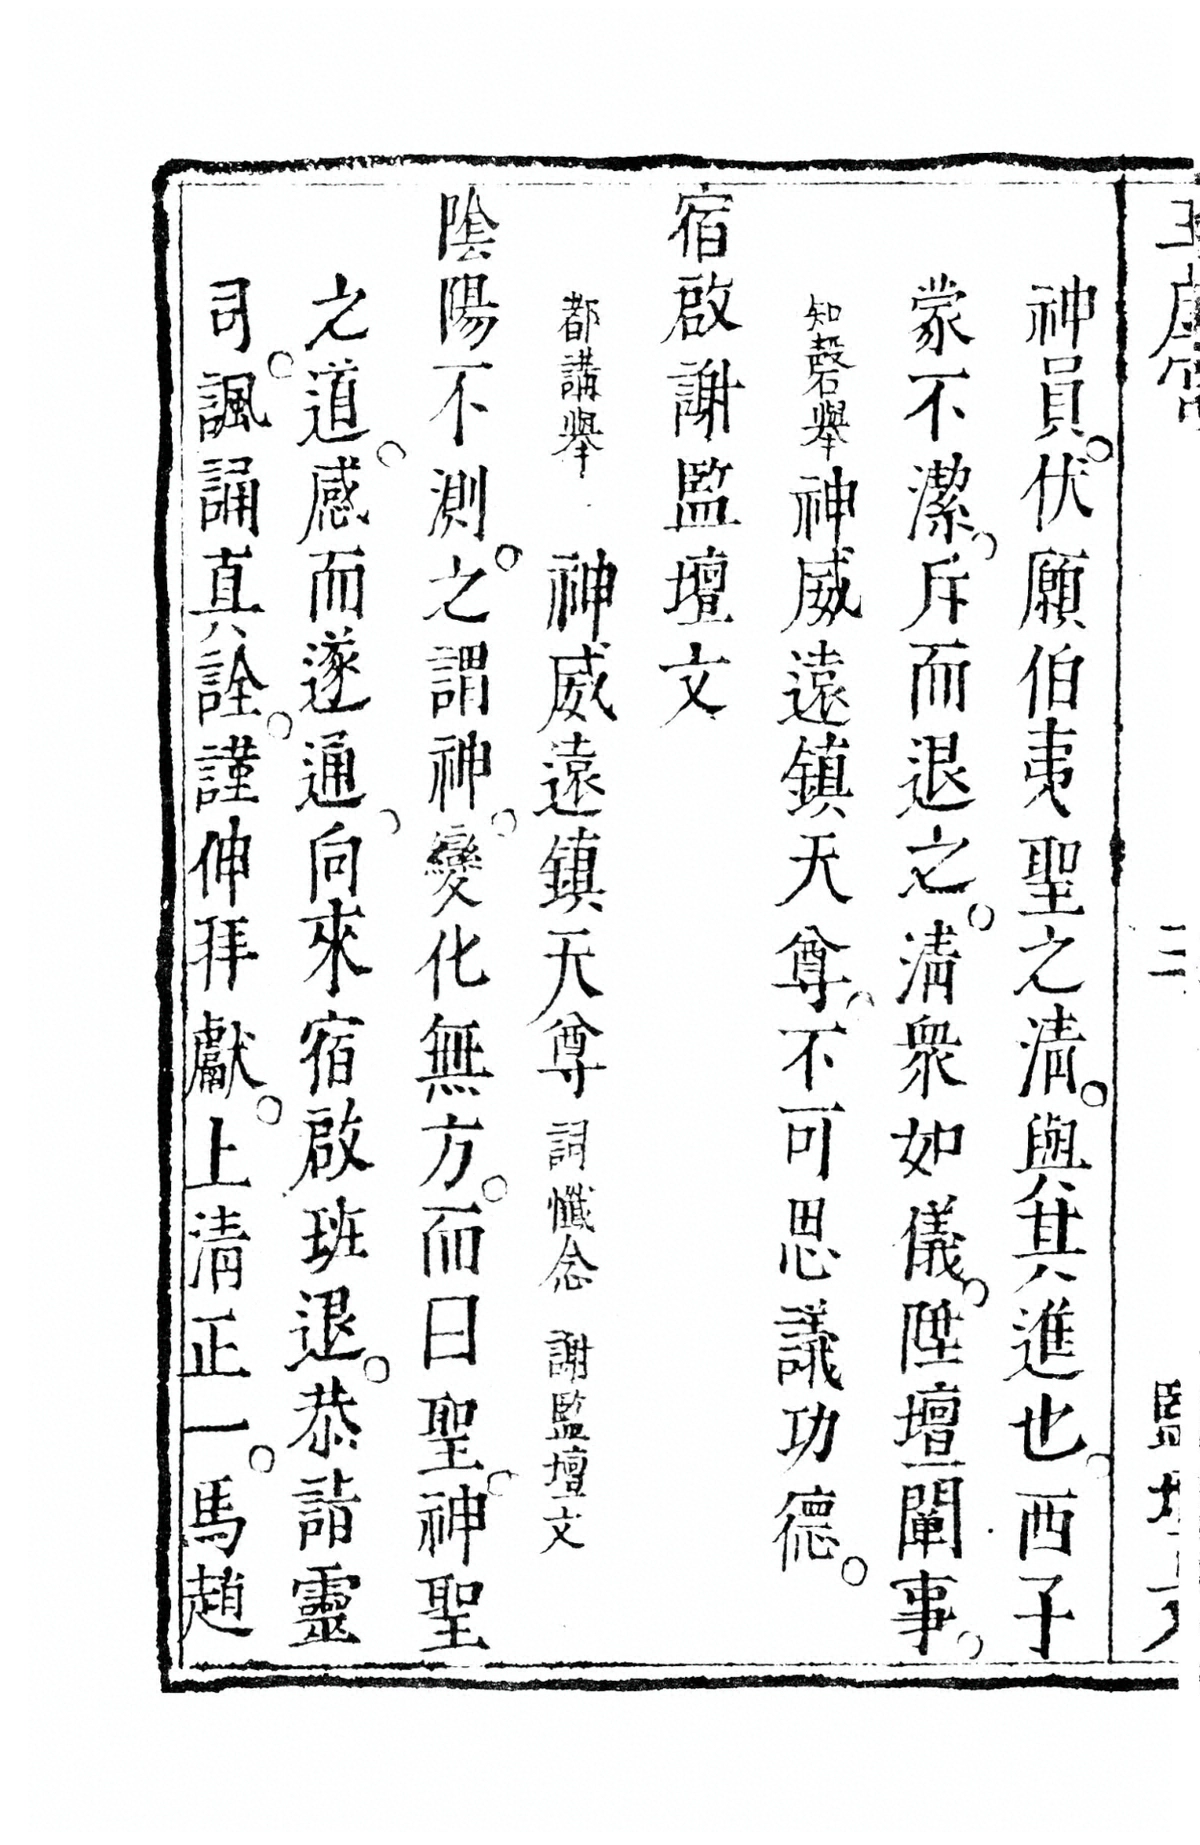 神員。伏願伯夷聖之清。與其進也。西子
蒙不潔。斥而退之。清衆如儀。陞壇闡事。
知磬舉神威遠鎮天尊。不可思議功德。
宿啟謝監壇文
都講舉 神威遠鎮天尊 詞懺念 謝監壇文
陰陽不測。之謂神。變化無方。而曰聖。神聖
之道。感而遂通。向來宿啟班退。恭詣靈
司。諷誦真詮。謹伸拜獻。上清正一。馬趙